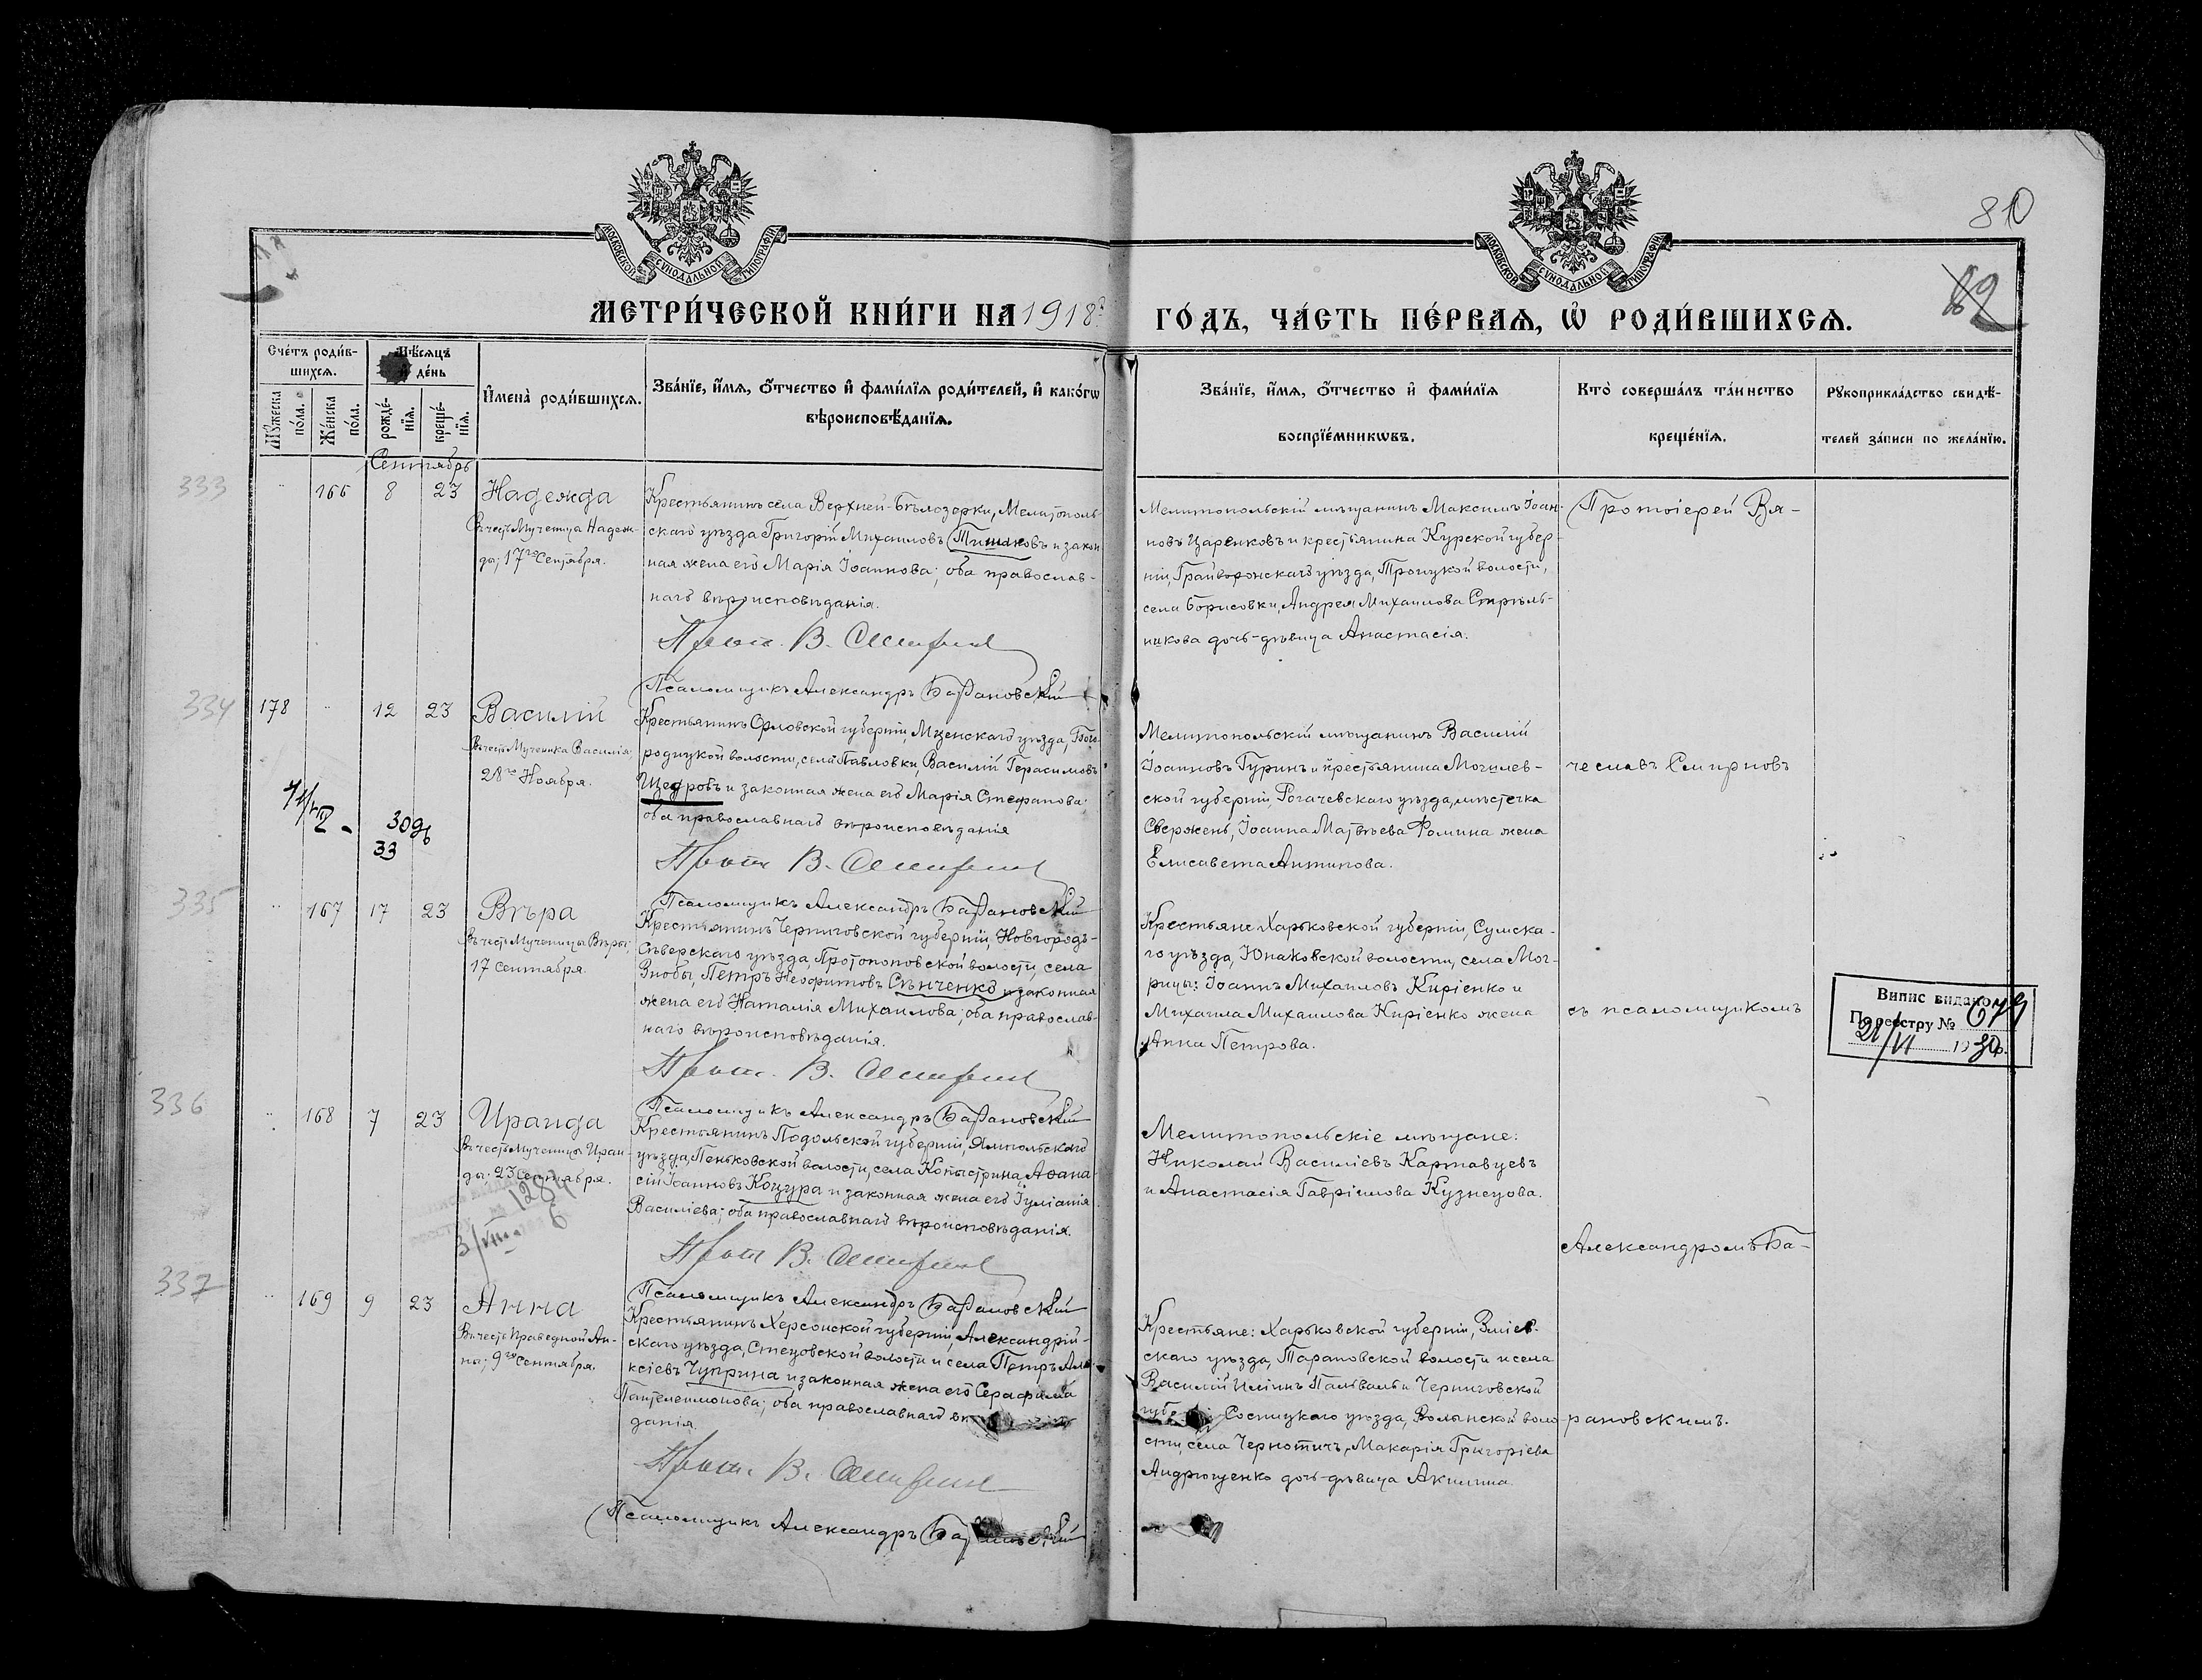 МОСКОВСКОЙ СѴНОДАЛЬНОЙ ТИПОГРАФІИ
МОСКОВСКОЙ СѴНОДАЛЬНОЙ ТИПОГРАФІИ
81
82
МЕТРИ́ЧЕСКОЙ КНИ́ГИ НА 1918 г.
ГО́ДЪ, ЧА́СТЬ ПЕ́РВАѦ, Ѡ҆ РОДИ́ВШИХСѦ.
Сче́тъ роди́в-
шихсѧ.
Мѣ́сѧцъ
и҆ де́нь
Мꙋ́жеска по́ла.
Же́нска по́ла.
рожде́нїѧ.
креще́нїѧ.
И҆мена̀ роди́вшихсѧ.
Зва́нїе, и҆́мѧ, ѻ҆́тчество и҆ фами́лїѧ роди́телей, и҆ како́гѡ
вѣроисповѣ́данїѧ.
Зва́нїе, и҆́мѧ, ѻ҆́тчество и҆ фами́лїѧ
воспрїе́мникѡвъ.
Кто̀ соверша́лъ та́инство
креще́нїѧ.
Рꙋкоприкла́дство свидѣ́-
телей за́писи по жела́нїю.
Сентябрь
333
166 8 23 Надежда
Въ честь Мученица Надеж-
ды; 17го Сентября.
Крестьянинъ села Верхней-Бѣлозерки, Мелитополь-
скаго уѣзда Григорій Михаиловъ Тишаковъ и закон-
ная жена его Марія Іоаннова; оба православ-
наго вѣроисповѣданія.
Прот. В. Смирнов
Псаломщикъ Александръ Барановскій
Мелитопольскій мѣщанинъ Максимъ Іоан-
новъ Царенковъ и крестьянина Курской губер-
ніи, Грайворонскаго уѣзда, Троицкой волости,
села Борисовки, Андрея Михаилова Стрѣль-
никова дочь-дѣвица Анастасія.
Протоіерей Вя-
334
178 12 23 Василій
Въ честь Мученика Василія;
28го Ноября.
Крестьянинъ Орловской губерніи, Мценскаго уѣзда, Бого-
родицкой волости, села Павловки, Василій Герасимовъ
Щедровъ и законная жена его Марія Стефанова;
оба православнаго вѣроисповѣданія
Прот В. Смирнов
Псаломщикъ Александръ Барановскій
Мелитопольскій мѣщанинъ Василій
Іоанновъ Гуринъ и крестьянина Могилев-
ской губерніи, Рогачевскаго уѣзда, мѣстечка
Свержень, Іоанна Матвѣева Фомина жена
Елисавета Антипова.
чеславъ Смирновъ
33
335
167 17 23 Вѣра
Въ честь Мученицы Вѣры;
17 Сентября.
Крестьянинъ Черниговской губерніи, Новгородъ-
Сѣверскаго уѣзда, Протопоповской волости, села
Знобы, Петръ Неофитовъ Сѣнченко и законная
жена его Наталія Михаилова; оба православ-
наго вѣроисповѣданія.
Прот. В. Смирнов
Псаломщикъ Александръ Барановскій
Крестьяне Харьковской губерніи, Сумска-
го уѣзда, Юнаковской волости, села Мог-
рицы: Іоаннъ Михаиловъ Киріенко и
Михаила Михаилова Киріенко жена
Анна Петрова.
съ псаломщикомъ
Випис видано
По реєстру №
21/VI 1930р.
336
168 7 23 Ираида
Въ честь Мученицы Ираи-
ды; 23 Сентября.
3/VIII
Крестьянинъ Подольской губерніи, Ямпольскаго
уѣзда, Пеньковской волости, села Копыстрина, Аѳана-
сій Іоанновъ Коцура и законная жена его Іуліанія
Василіева; оба православнаго вѣроисповѣданія.
Прот В. Смирнов
Псаломщикъ Александръ Барановскій
Мелитопольскіе мѣщане:
Николай Василіевъ Картавцевъ
и Анастасія Гавріилова Кузнецова.
Александромъ Ба-
337
169 9 23 Анна
Въ честь Праведной Ан-
ны; 9го Сентября.
Крестьянинъ Херсонской губерніи, Александрій-
скаго уѣзда, Стецовской волости и села Петръ Але-
ксіевъ Чуприна и законная жена его Серафима
Пантелеимонова; оба православнаго
данія.
Прот. В. Смирнов
Псаломщикъ Александръ Барановскій
Крестьяне: Харьковской губерніи, Зміев-
скаго уѣзда, Тарановской волости и села
Василій Иліинъ Пальваль и Черниговской
Сосницкаго уѣзда, Волынской воло-
сти, села Чернотичъ, Макарія Григоріева
Андрющенко дочь-дѣвица Акилина.
рановскимъ.